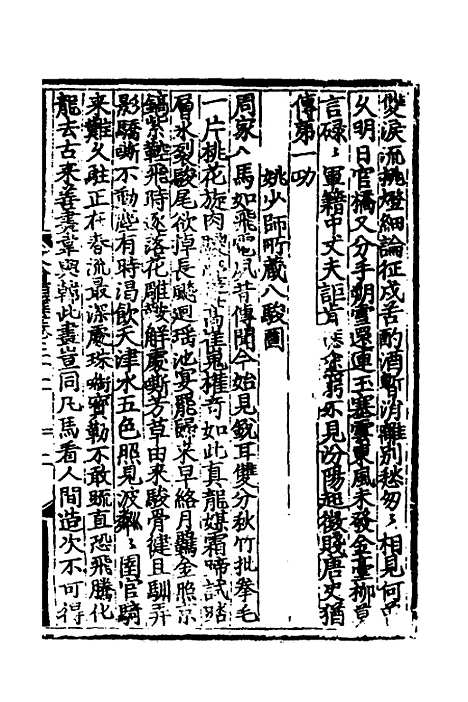 雙淚流挑燈細論征戍苦酌酒暫消離別愁匆〻相見何
久明日官橋又分手朔雪還連玉塞雲東風未發金臺柳
言碌〻軍籍中丈夫詎肯悲窮不見汾陽起徵賤唐史猶
傳第一功
姚少師所藏八駿圖
周家八馬如飛電夙昔傳聞今始見銳耳雙分秋竹批拳毛
一片桃花旋肉高崔嵬權奇如此真龍媒霜啼試踏
層氷裂駿尾欲掉長飈迴瑶池宴罷歸來早絡月羈金照京
鎬紫鞚飛時逐落花雕鞍解處嘶芳草由來駿骨健且馴弄
影驕嘶不動塵有時渴飲天津水五色照見波粼〻圉官騎
來難久駐正在春流最深處珠銜寶勒不敢疏直恐飛騰化
龍去古來善畫韋與韓此畫豈同凡馬看人間造次不可得